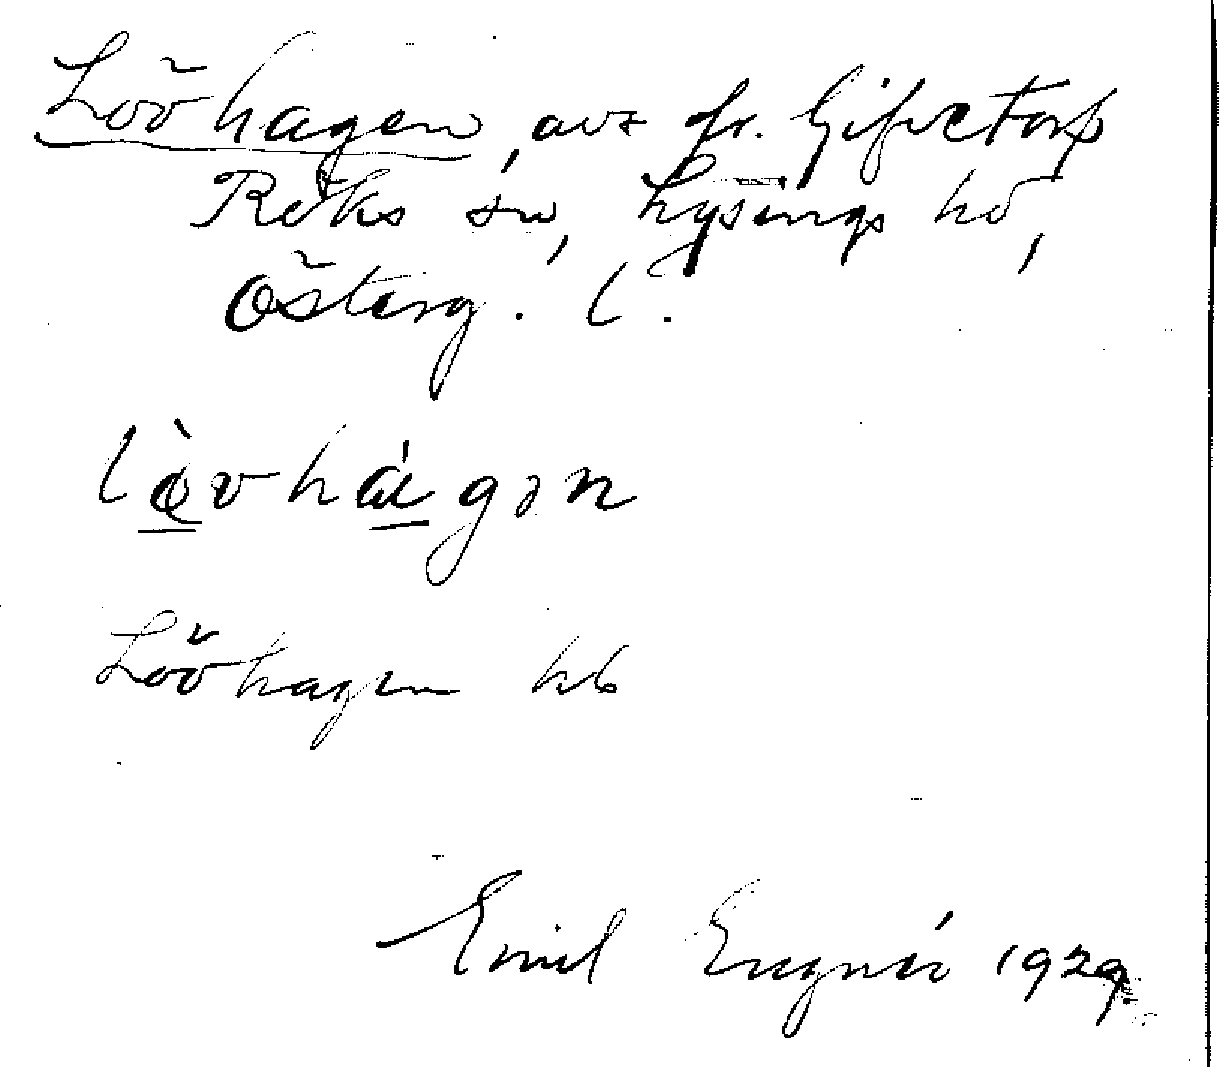 Lövhagen, avs fr. Gifvetorp
Röks sn, Lysings hd,
Österg. l.
lövhagən
Lövhagen hb
Emil 1929